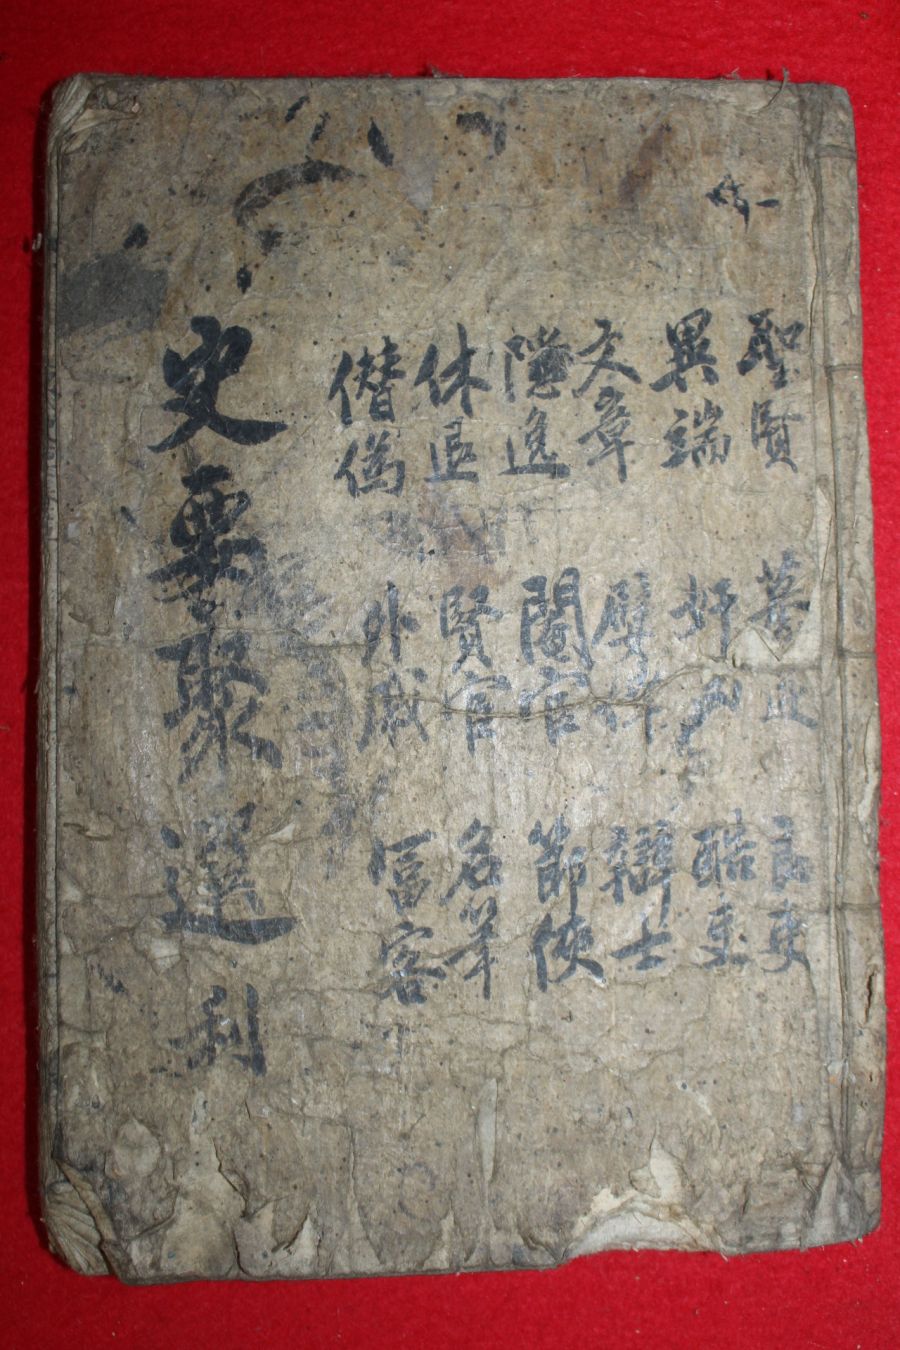 聖賢 良吏
異端 奸 酷吏
文章 嬖倖 辯士
隱逸 閹官 節俠
休退 賢官 名筆
僭偽 外戚 富客
史要聚選 利